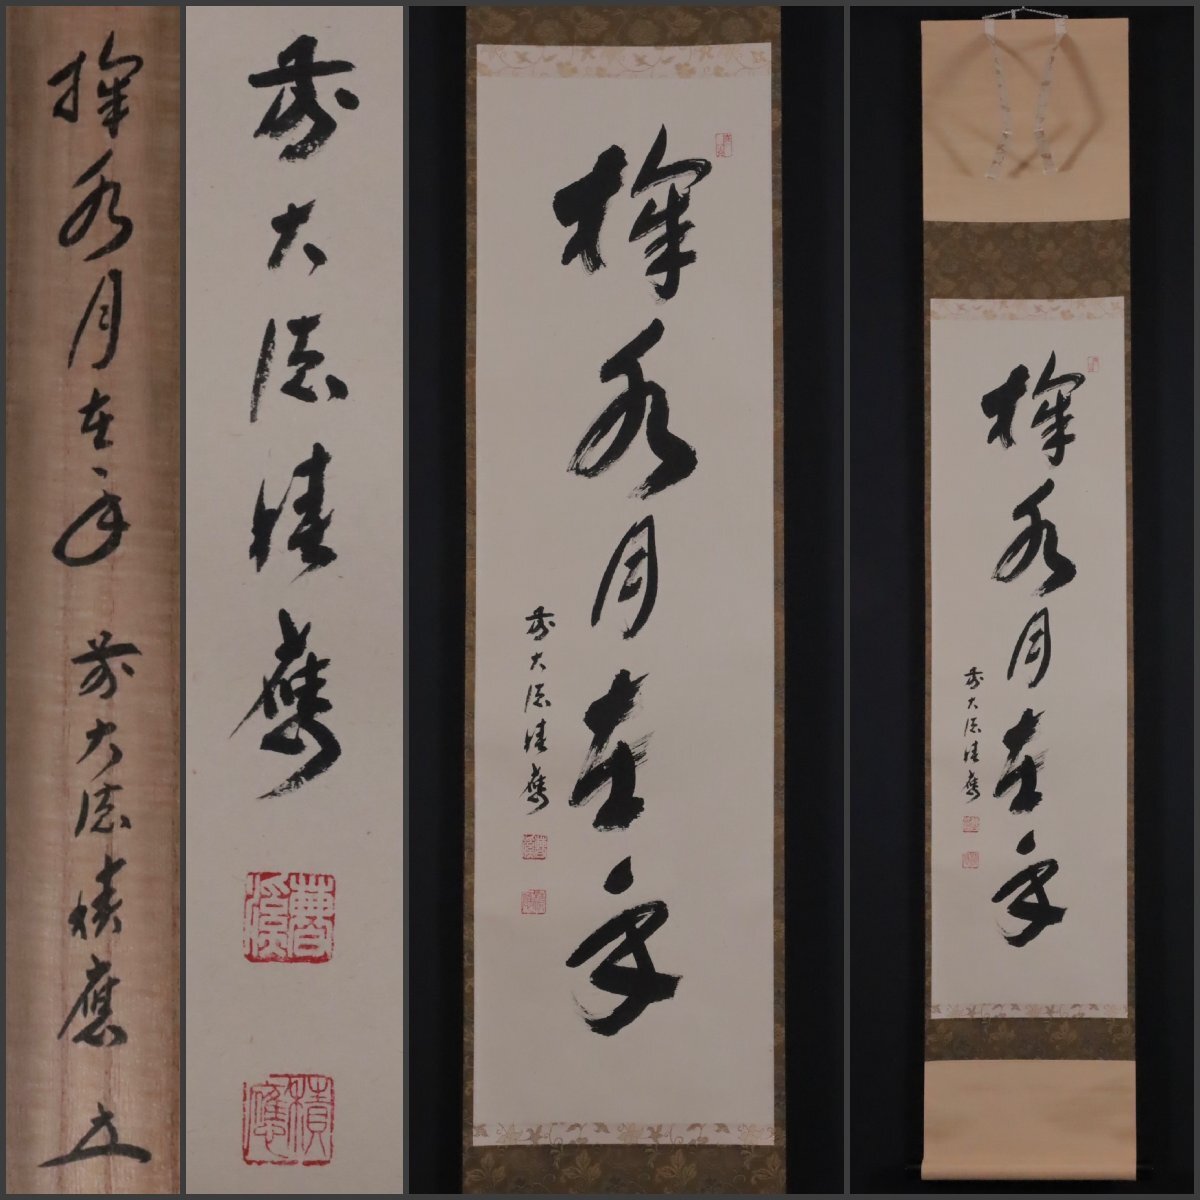 掬水月在手 前大徳積應
前大徳積應
積應
掬水月在手
前大徳積應
掬水月在手
前大徳積應